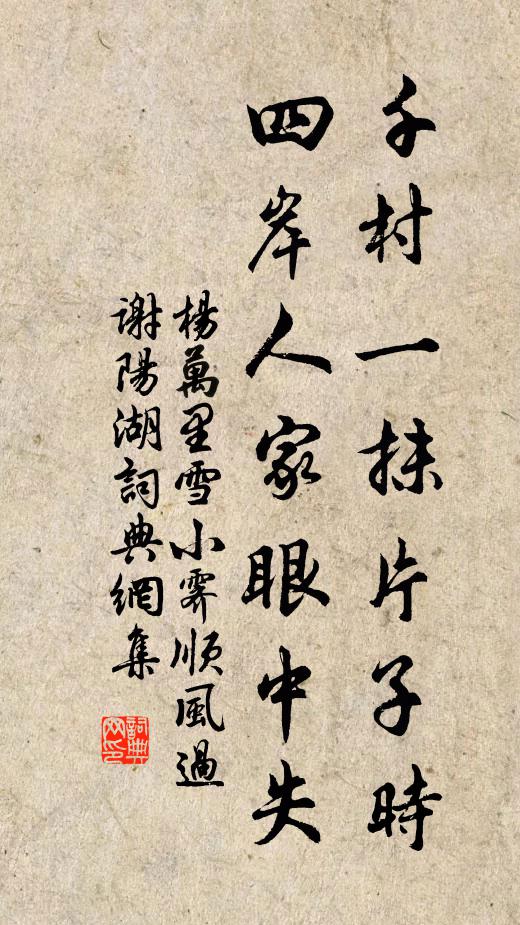 千村一抹片子時
四岸人家眼中失
楊萬里雪小霁順風過
謝陽湖詞典網集
詞典
网印